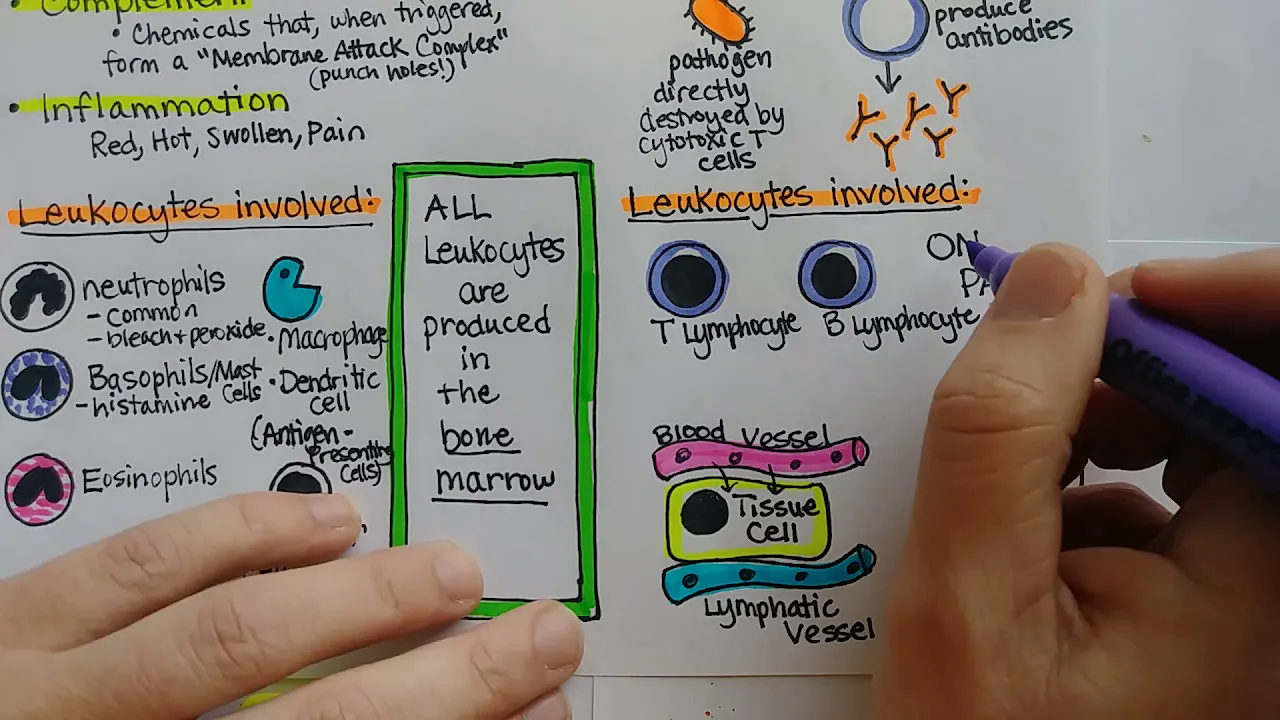 • Complement
• Chemicals that, when triggered,
form a "Membrane Attack Complex"
(punch holes!)
• Inflammation
Red, Hot, Swollen, Pain
Leukocytes involved:
neutrophils
- common
- bleach + peroxide
Basophils/Mast
Cells
- histamine
Eosinophils
• Macrophage
• Dendritic
cell
(Antigen-
Presenting
Cells)
ALL
Leukocytes
are
produced
in
the
bone
marrow
pathogen
directly
destroyed by
cytotoxic T
cells
produce
antibodies
Leukocytes involved:
T Lymphocyte
B Lymphocyte
ON
PA
Blood Vessel
Tissue
Cell
Lymphatic
Vessel